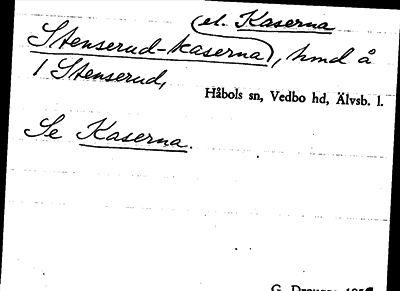 (el. Kaserna
Stenserud-kaserna), hmd å
1 Stenserud,
Håbols sn, Vedbo hd, Älvsb. l.
Se Kaserna.